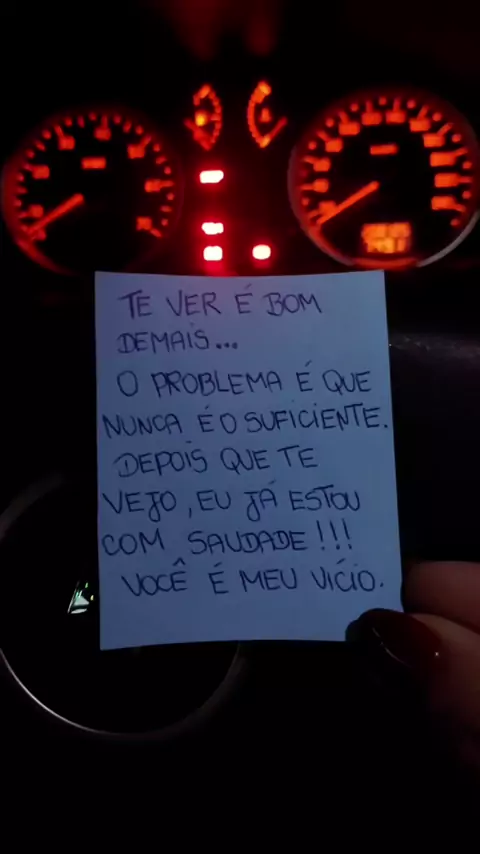 TE VER É BOM
DEMAIS...
O PROBLEMA É QUE
NUNCA É O SUFICIENTE.
DEPOIS QUE TE
VEJO, EU JÁ ESTOU
COM SAUDADE!!!
VOCÊ É MEU VÍCIO.